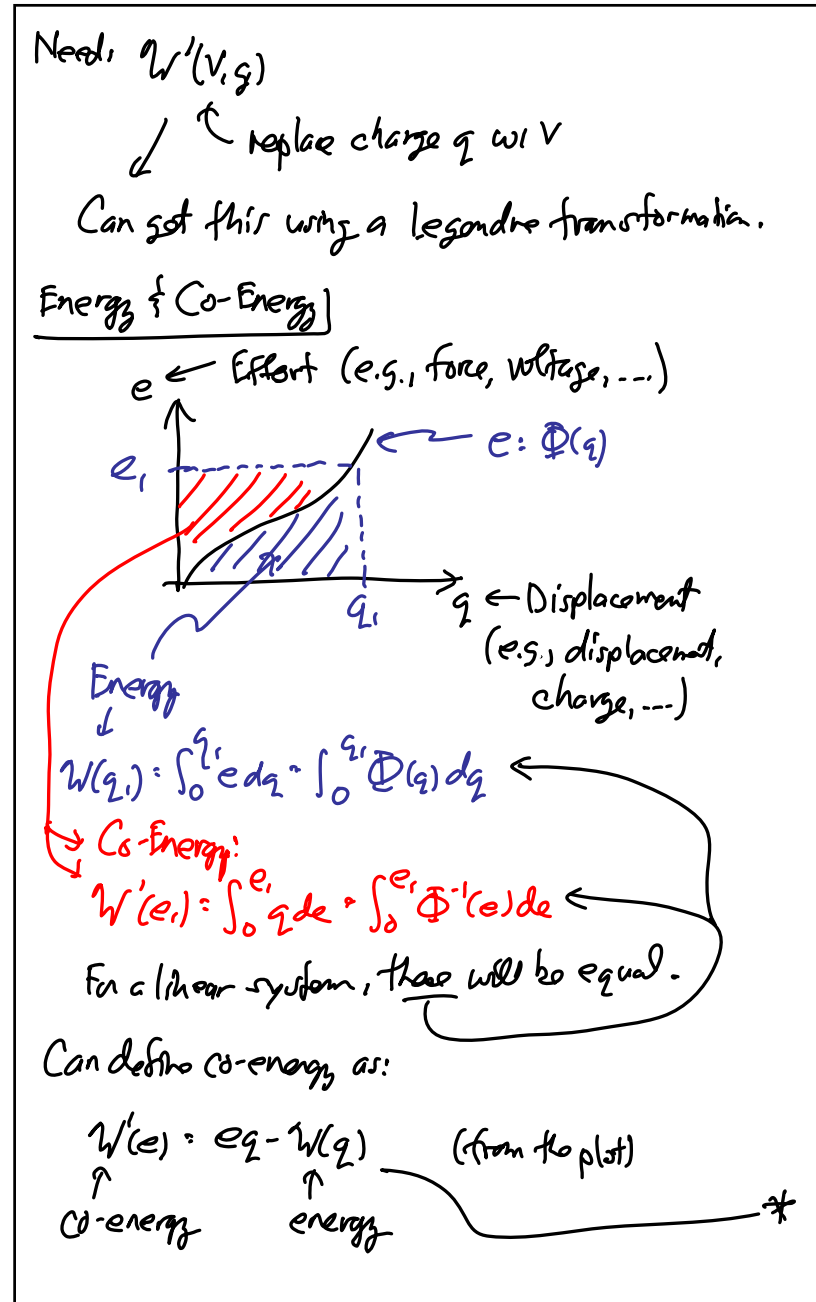 Need: W'(V, g)
replace charge q w/ V
Can get this using a Legendre transformation.
Energy & Co-Energy
e ← Effort (e.g., force, voltage, ....)
e₁
e = Φ(q)
q₁
q ← Displacement
(e.g., displacement,
charge, ....)
Energy
W(q₁) = ∫₀^q₁ e dq = ∫₀^q₁ Φ(q) dq
Co-Energy:
W'(e₁) = ∫₀^e₁ q de = ∫₀^e₁ Φ⁻¹(e) de
For a linear system, these will be equal.
Can define co-energy as:
W'(e) = eq - W(q) (from the plot)
co-energy energy *